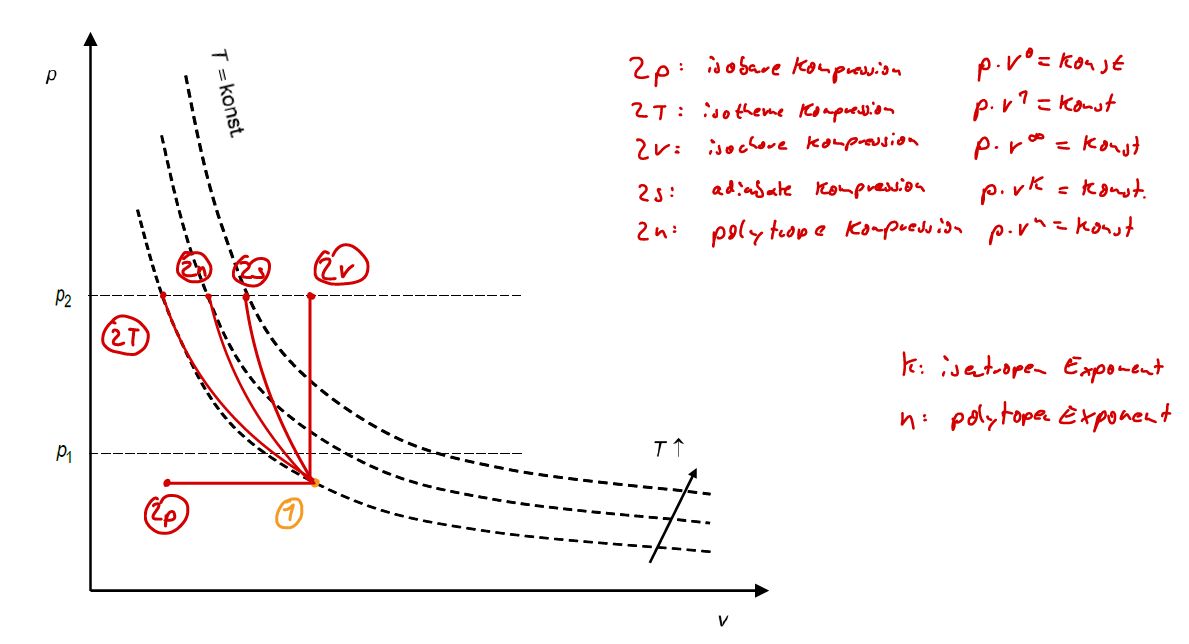 p
T = konst
2p: isobare Kompression p · v⁰ = konst
2T: isotherme Kompression p · v¹ = konst
2v: isochore Kompression p · v^∞ = konst
2s: adiabate Kompression p · v^κ = konst.
2n: polytrope Kompression p · vⁿ = konst
2n 2s 2v
p₂
2T
κ: isentropen Exponent
n: polytopen Exponent
p₁
T ↑
2p 1
v